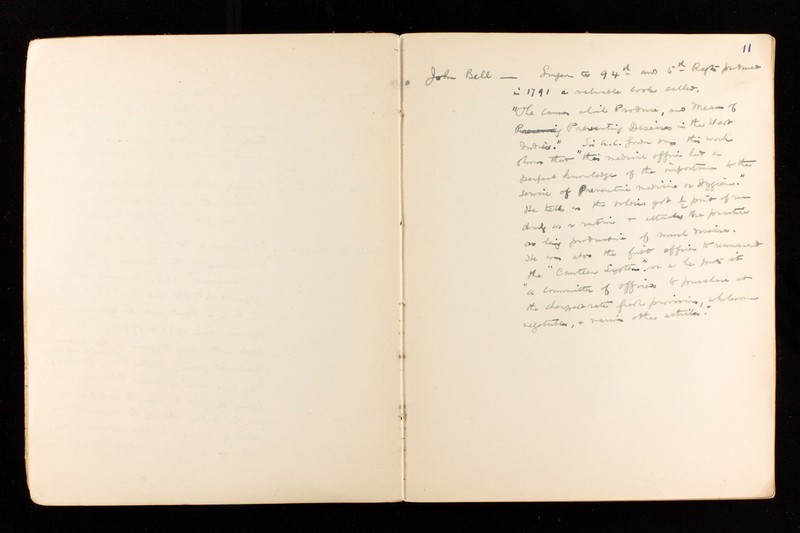 11
John Bell — Surgeon to 94th and 5th Regts produced
in 1791 a valuable book called,
"The Causes which Produce, and Means of
Preventing Diseases in the West
Indies." Sir A.C. says this work
shows that "this medical officer had a
perfect knowledge of the importance to the
service of Preventive medicine or Hygiene."
He tells us the soldiers got ½ pint of rum
daily as a ration & attacks the practice
as being productive of much disease.
He was also the first officer to recommend
the "Canteen System" or as he puts it
"a committee of officers to purchase at
the cheapest rate fresh provisions, wholesome
vegetables, & various other articles."